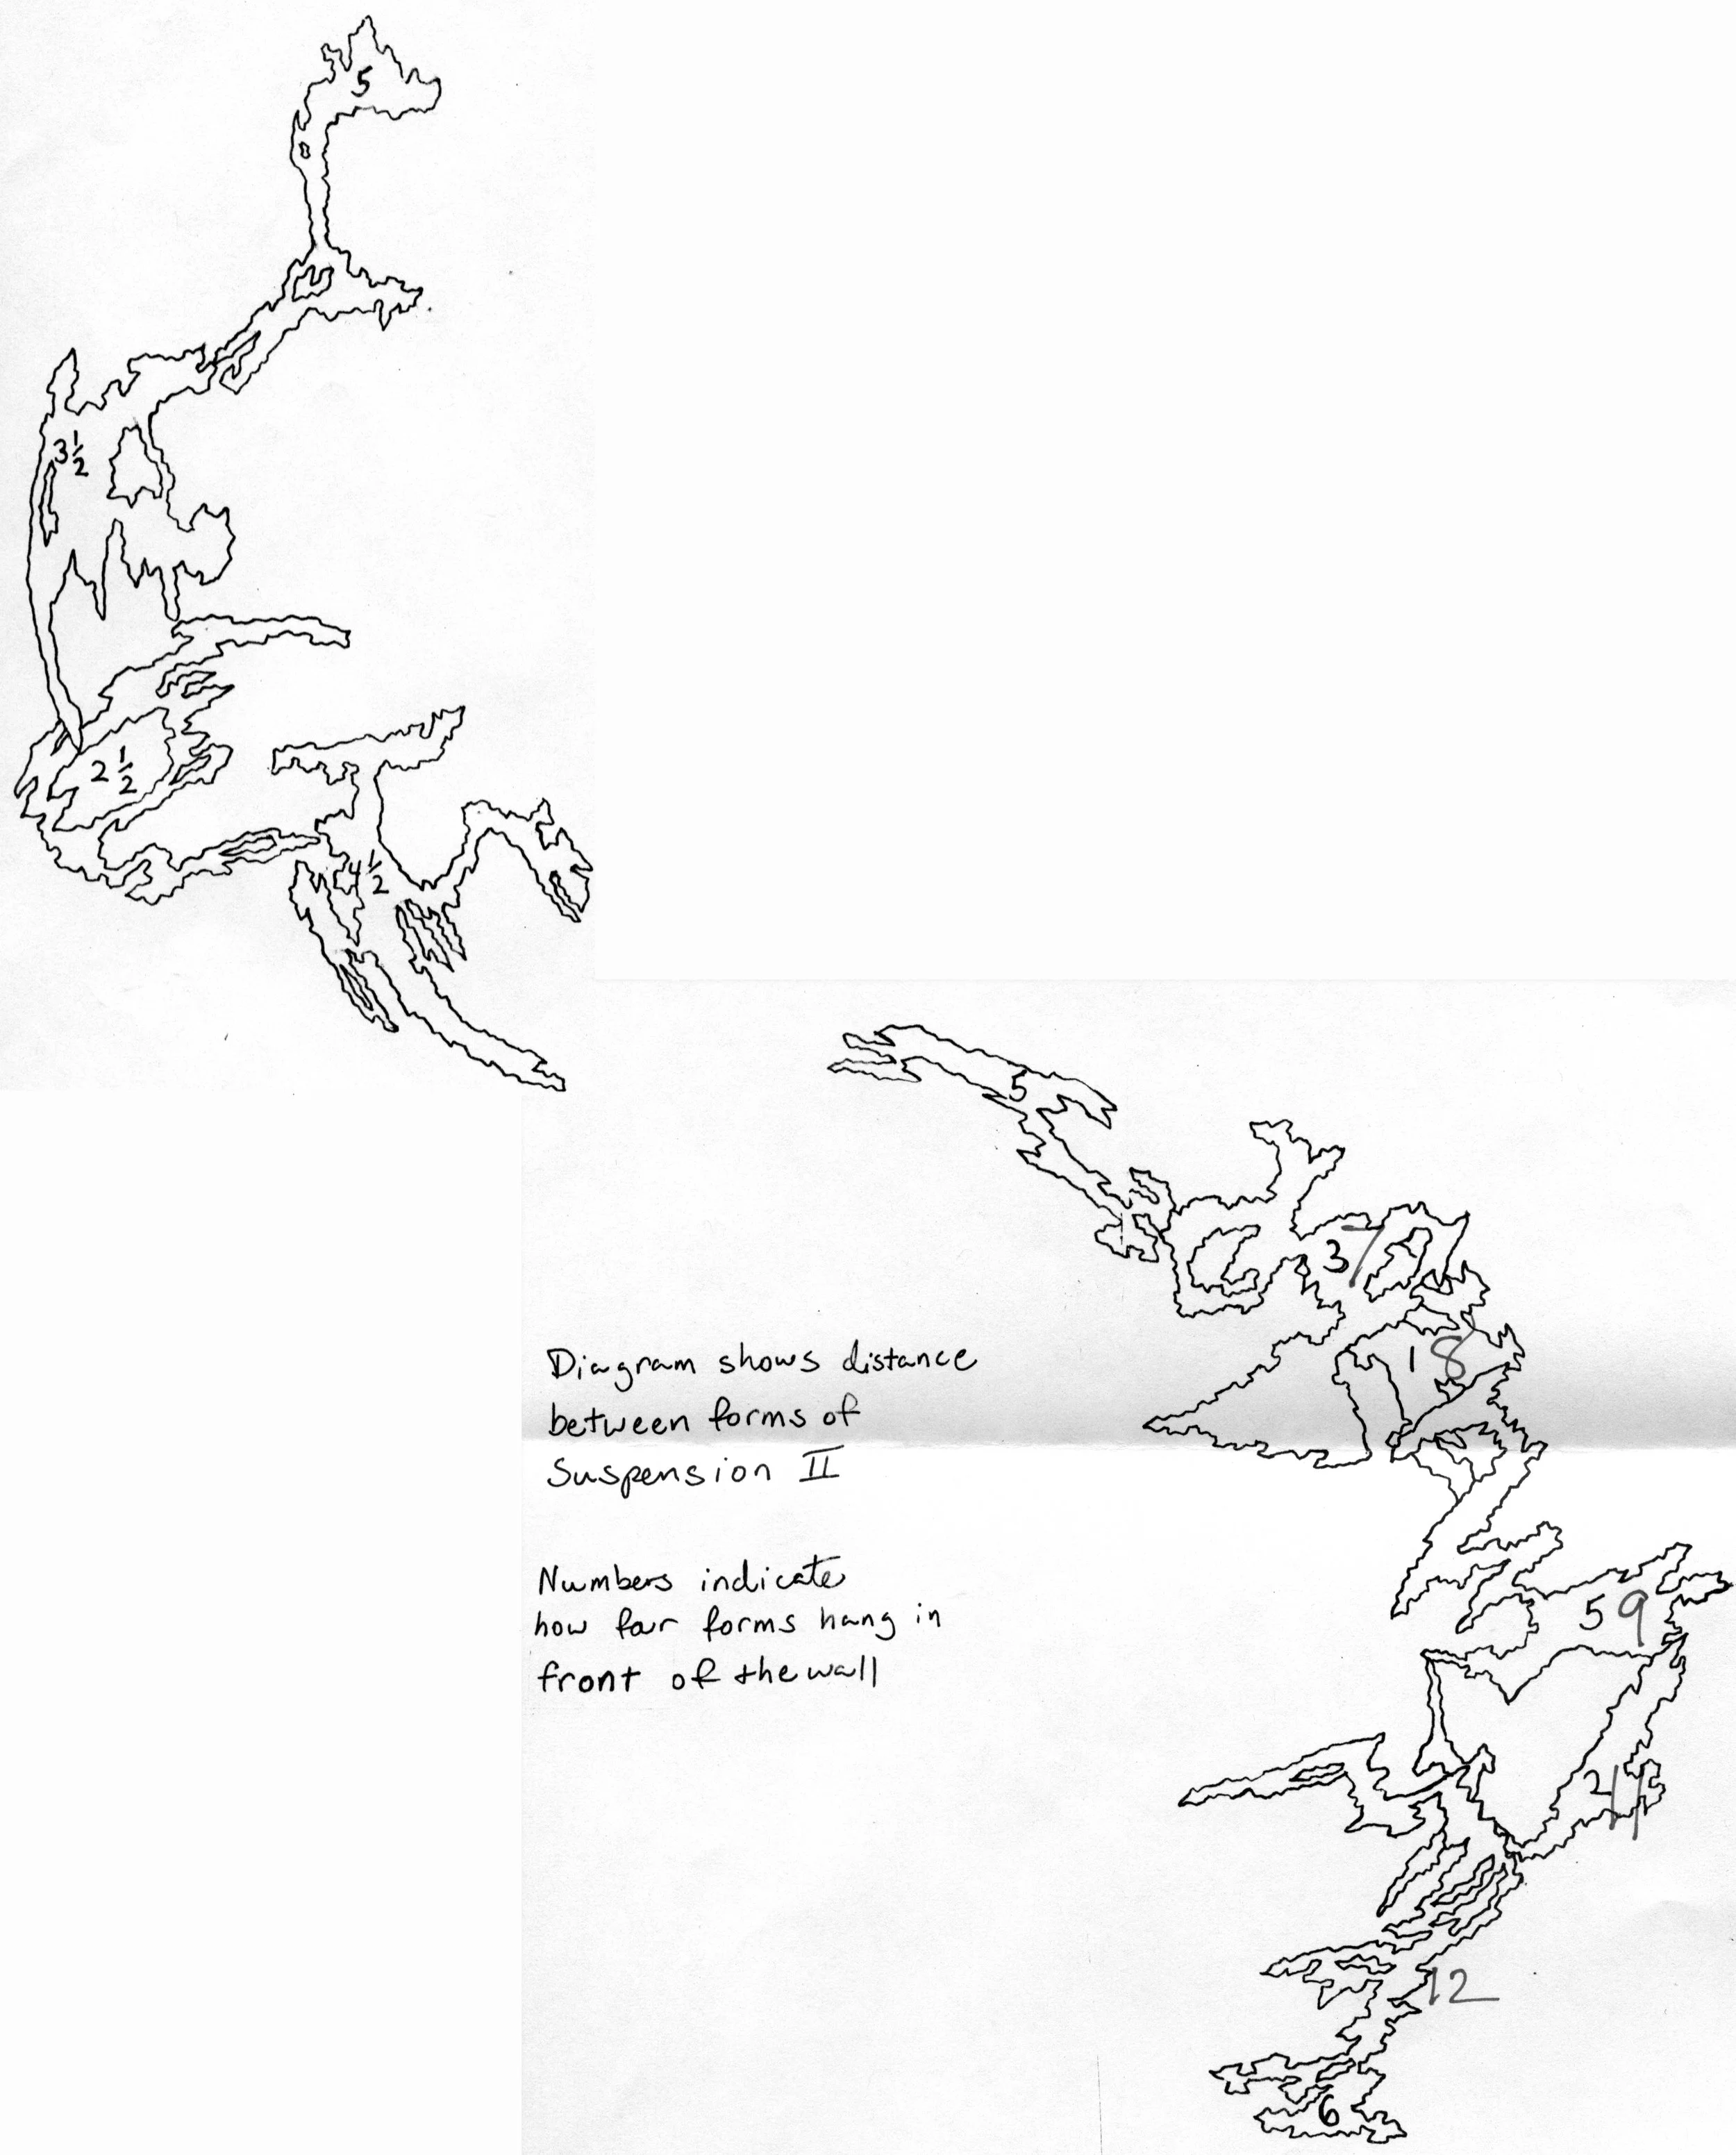 5
3½
2½
4½
5
3 7
1 8
Diagram shows distance
between forms of
Suspension II
Numbers indicate
how far forms hang in
front of the wall
5 9
2 11
12
6